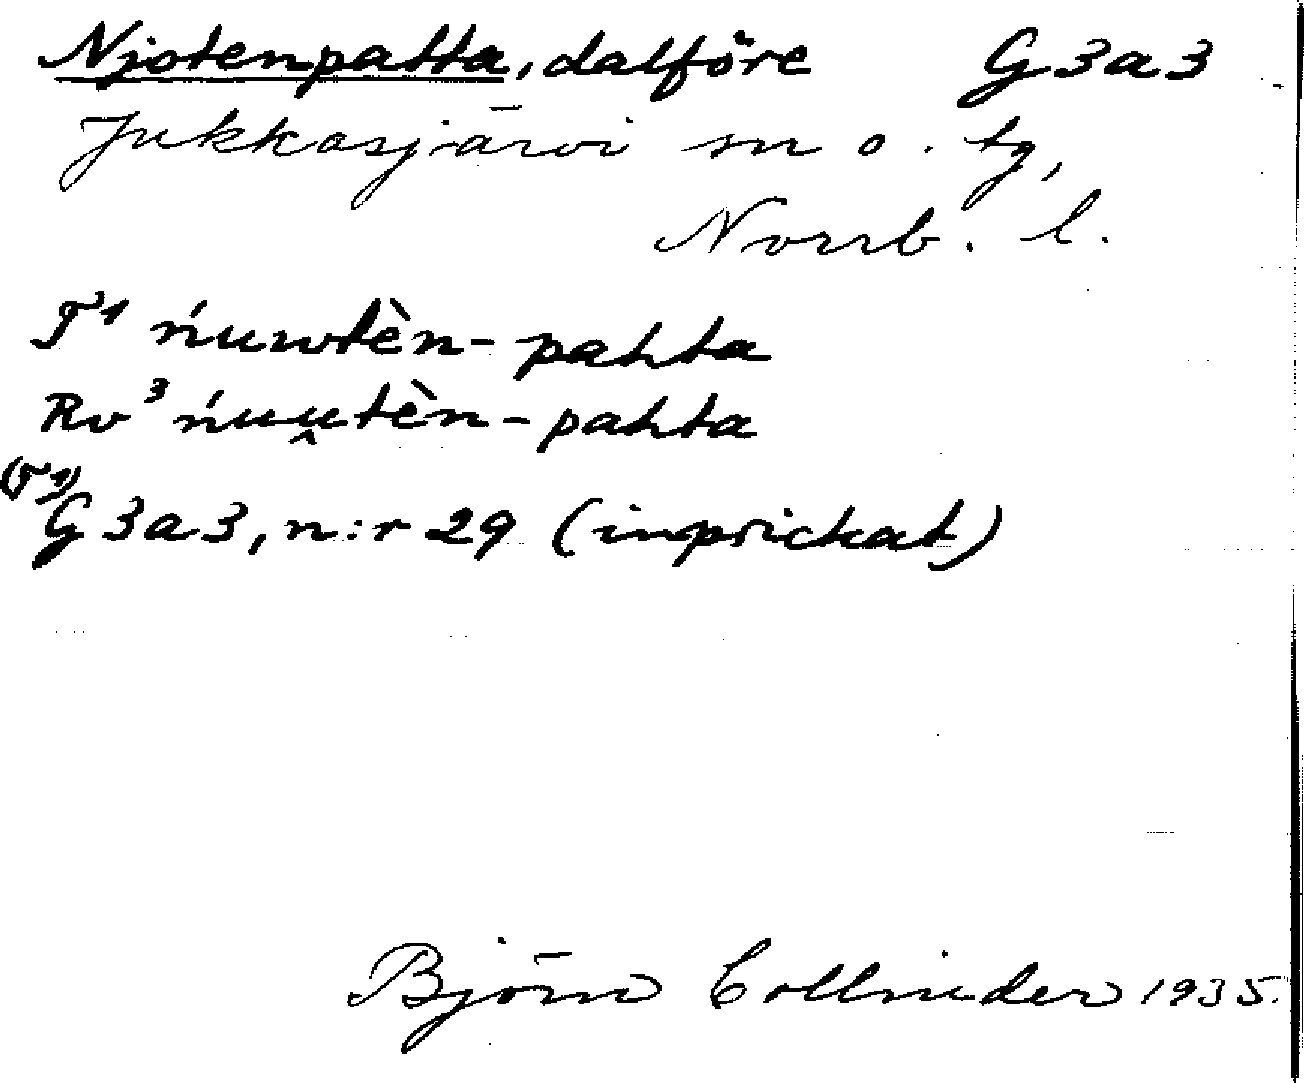 Njotenpatta, dalföre G3a3
Jukkasjärvi sn o. tg,
Norrb. l.
T¹ ńuwtèn-pahta
Rv³ ńuu̯tèn-pahta
(T1)
G3a3, n:r 29 (inprickat)
Björn Collinder 1935.